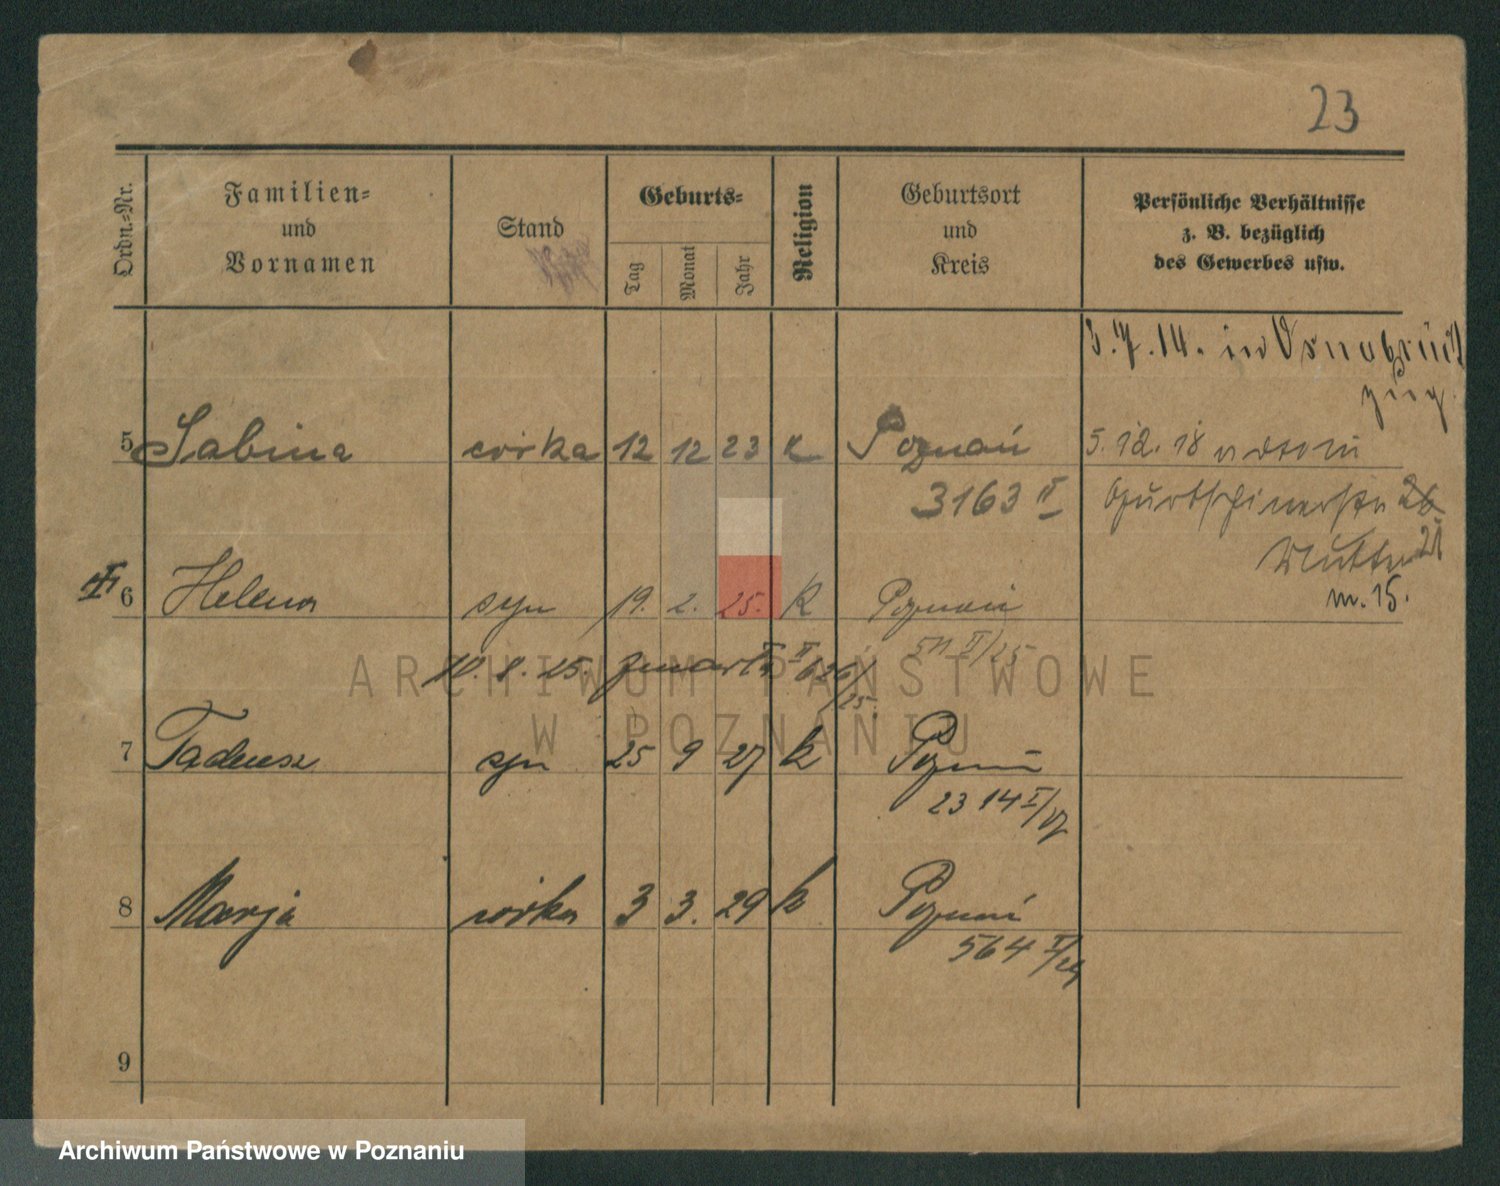 23
Ordn.-Nr.
Familien-
und
Vornamen
Stand
Geburts-
Tag
Monat
Jahr
Religion
Geburtsort
und
Kreis
Persönliche Verhältnisse
z. B. bezüglich
des Gewerbes usw.
3.7.14. in Osnabrück
zug.
5 Sabina córka 12 12 23 K Poznań 5.12.18
3163 II
26
21
6 Helena syn 19. 2. 25. K Poznań
Mutter
m. 15.
511 II/25
10. 8. 25. zmarła II 626/25
7 Tadeusz syn 25 9 27 k Poznań
2314 I/27
8 Marja córka 3 3. 29 k Poznań
564 I/29
9
ARCHIWUM PAŃSTWOWE
W POZNANIU
Archiwum Państwowe w Poznaniu